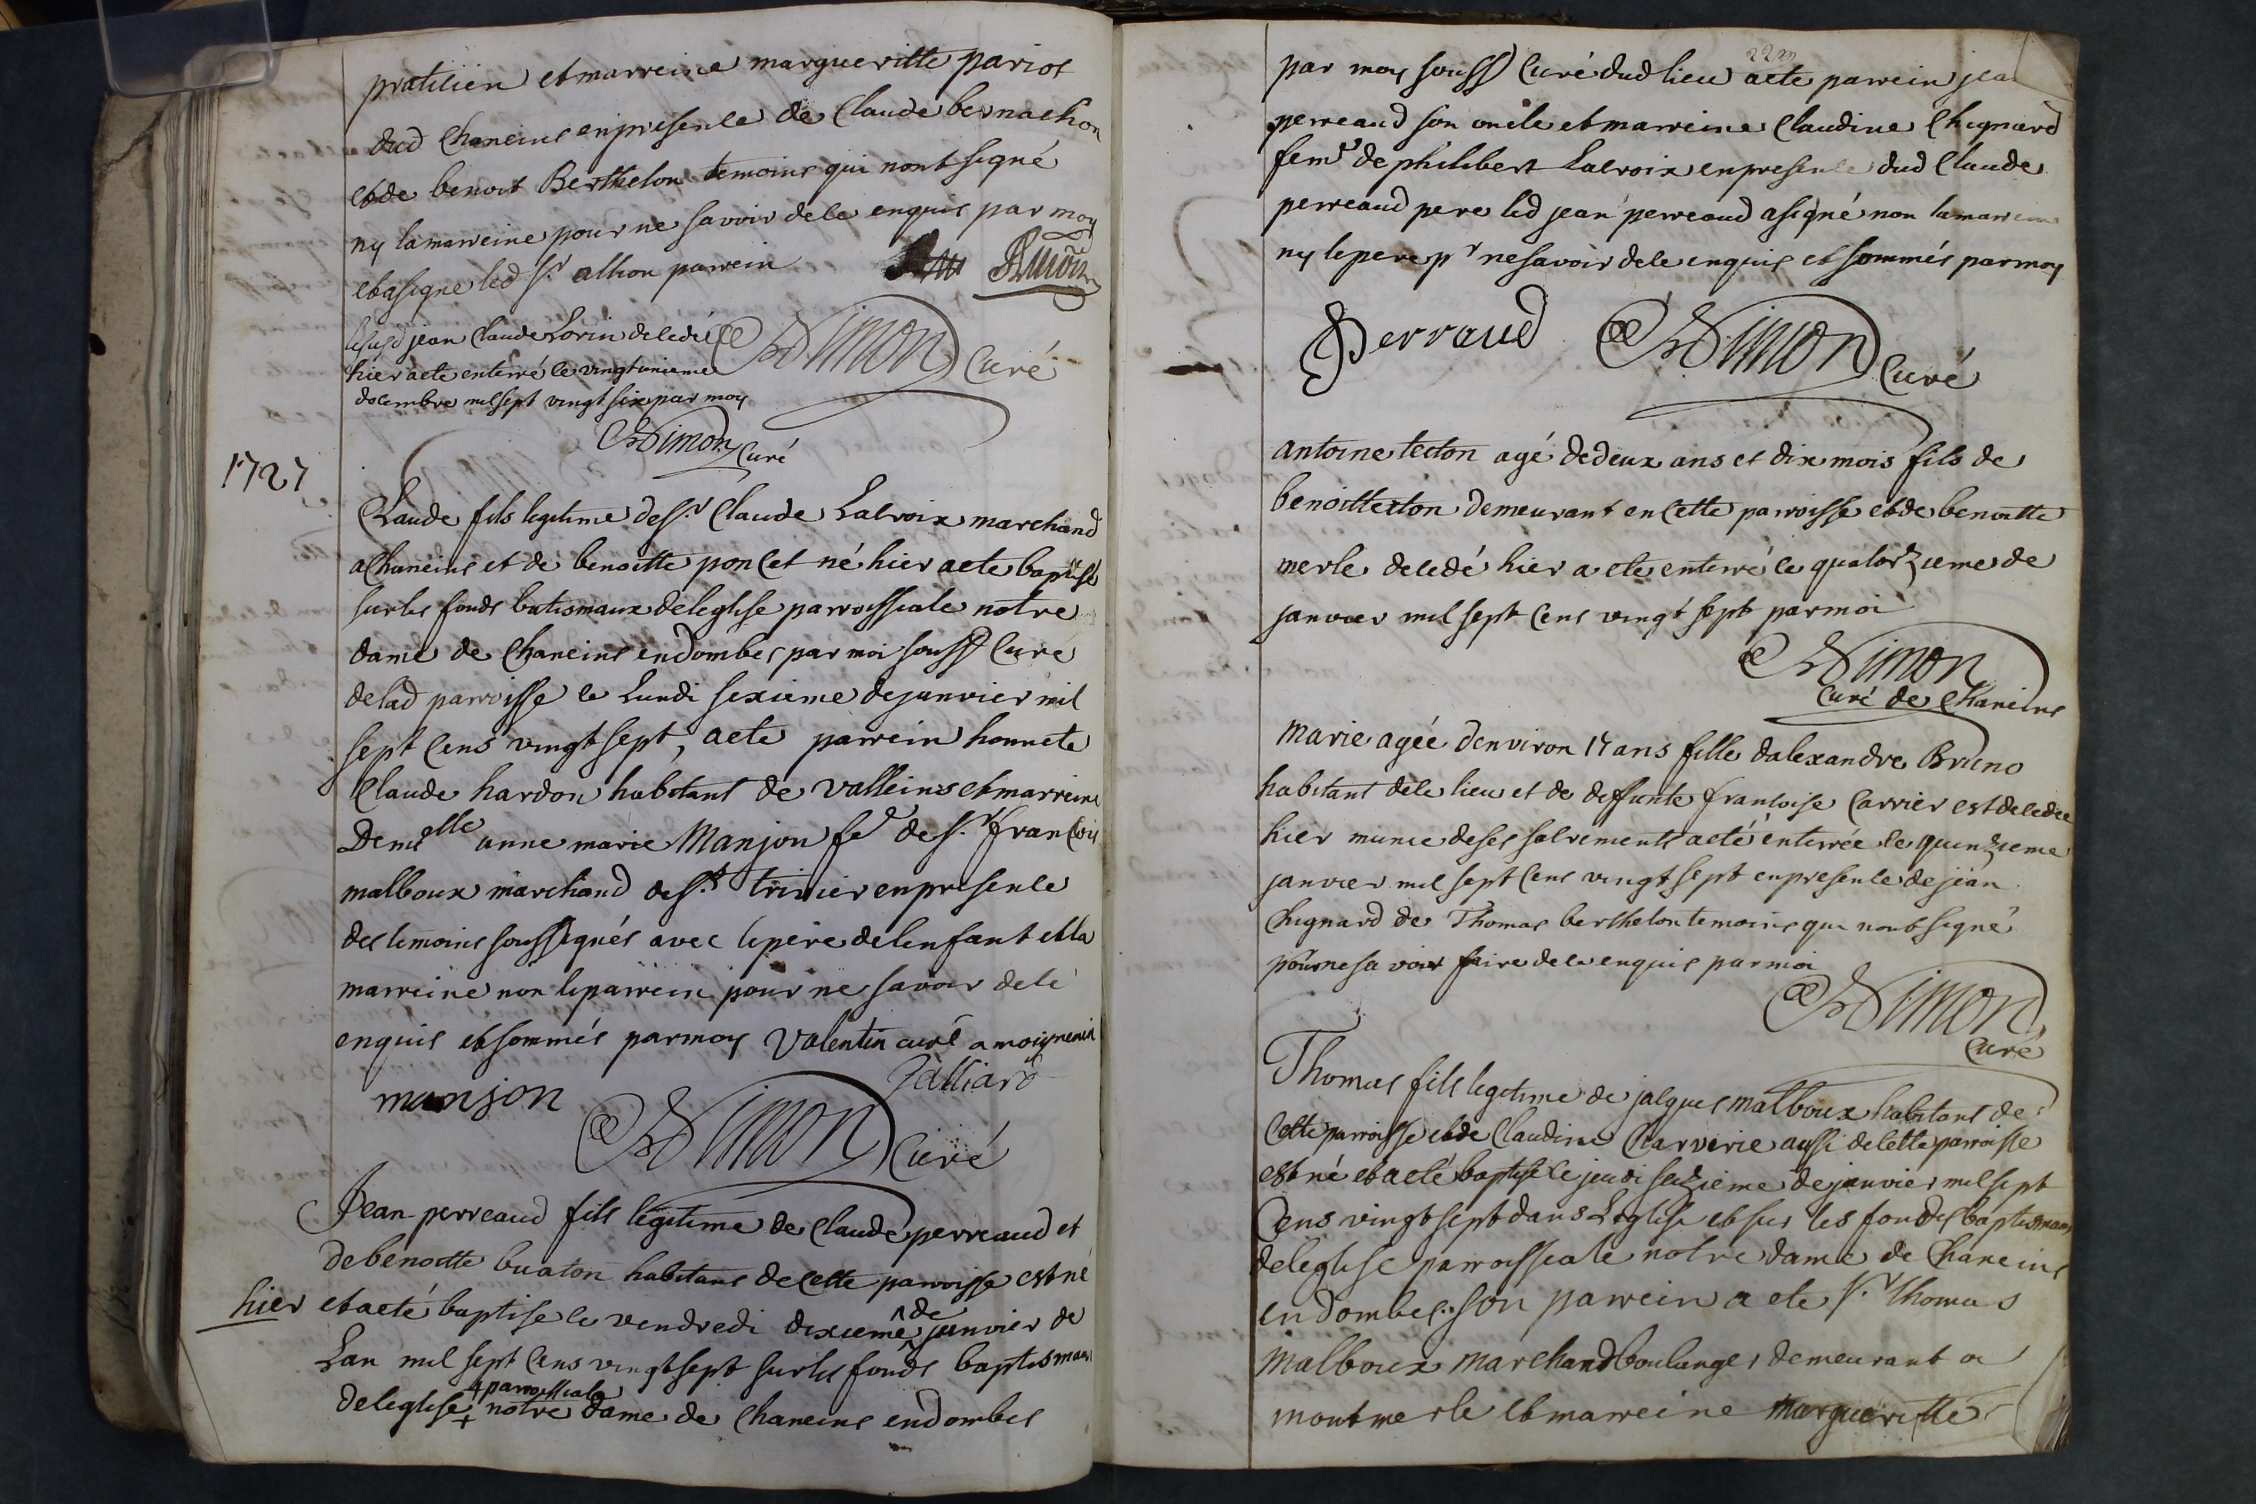 praticien et marreine margueritte pariot
dud Chaneins en presence de Claude bernachon
et de benoit Berthelon temoins qui nont signé
ny la marreine pour ne savoir de ce enquis par moy
et a signe led Sr. allion parrein
Simon Curé
le susd jean Claude Lorin decedé
hier a ete enterré le vingtunieme
decembre mil sept vingt six par moy
Simon Curé
1727
Claude fils legitime de Sr. Claude Lacroix marchand
a Chaneins et de benoitte poncet né hier a ete baptisé
sur les fonds batismaux de leglise parroissiale notre
dame de Chaneins en dombes par moi souss Curé
de lad parroisse le Lundi sixieme de janvier mil
sept Cens vingt sept, a ete parrein honnete
Claude hardon habitant de valleins et marreine
Demelle anne marie Manjon fe de Sr. francois
malboux marchand de St. trivier en presence
des temoins soussignés avec le pere de lenfant et la
marreine non le parrein pour ne savoir de ce
enquis et sommés par moy Valentin curé a moigneneins
manjon Jalliard
Simon Curé
Jean perreaud fils legitime de Claude perreaud et
de benoitte buaton habitans de cette parroisse est né
hier et a eté baptise le vendredi dixieme de janvier de
Lan mil sept Cens vingt sept sur les fonds baptismaux
de leglise + parroissiale notre dame de Chaneins en dombes
par moy souss Curé dud lieu a ete parrein jea
perreaud son oncle et marreine Claudine Chignard
feme de philibert Lacroix en presence dud Claude
perreaud pere led jean perreaud a signé non la marreine
ny le pere pr ne savoir de ce enquis et sommés par moy
Perraud Simon Curé
antoine tecton agé de deux ans et dix mois fils de
benoit tecton demeurant en Cette parroisse et de benoitte
merle decedé hier a ete enterré le quatorzieme de
janvier mil sept Cens vingt sept par moi
Simon
Curé de Chaneins
Marie agée denviron 17 ans fille dalexandre Bruno
habitant de ce lieu et de deffunte francoise Carrier est decedée
hier munie de ses sacrements a eté enterrée le quinzieme
janvier mil sept Cens vingt sept en presence de jean
Chignard de Thomas berthelon temoins qui nont signé
pour ne savoir faire de ce enquis par moi
Simon
Curé
Thomas fils legitime de jacques malboux habitant de
Cette parroisse et de Claudine Charverie aussi de cette parroisse
est né et a eté baptisé le jeudi seizieme de janvier mil sept
Cens vingt sept dans Leglise et sur les fondes baptismaux
de leglise parroissiale notre dame de Chaneins
en dombes: son parrein a ete Sr. thomas
malboux marchand boulanger demeurant a
montmerle et marreine margueritte